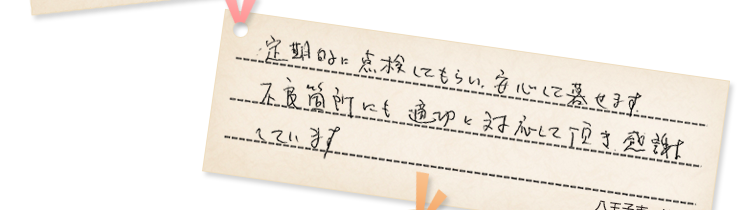 定期的に点検してもらい、安心して暮せます
不良箇所にも適切に対応して頂き感謝
しています
八王子市